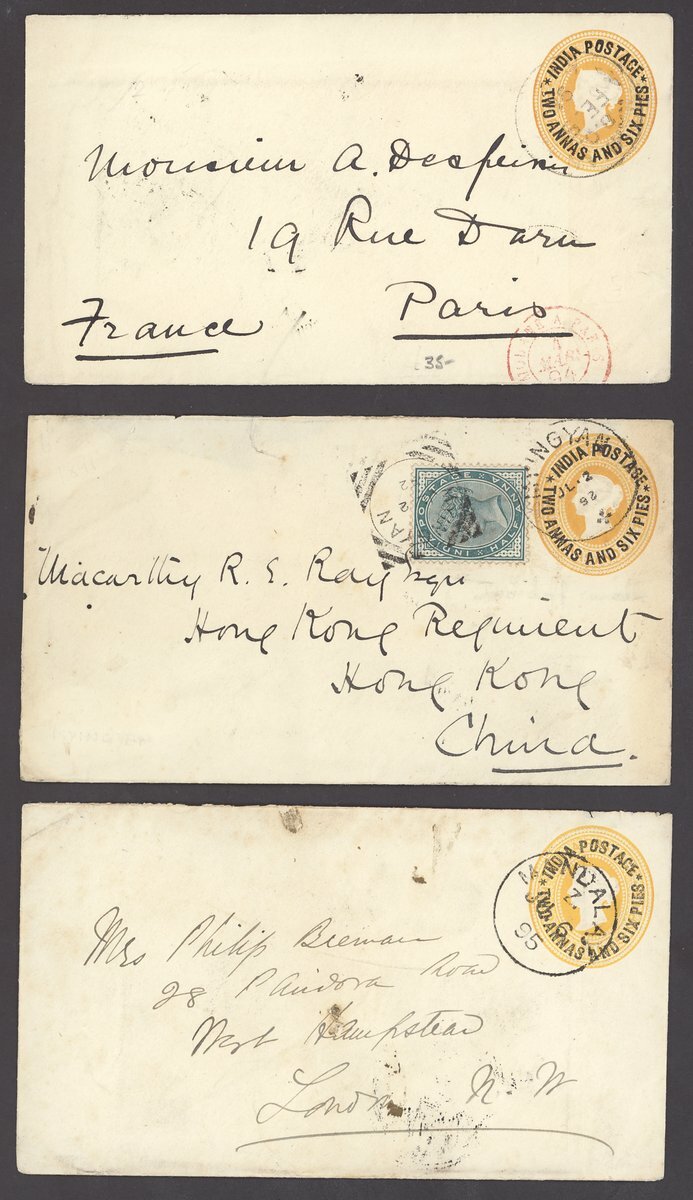 ★ INDIA POSTAGE ★
TWO ANNAS AND SIX PIES
Monsieur A.
19 Rue Daru
Paris
France
35-
A PARIS
MARS
94
INGYAN
JL 2
92
★ INDIA POSTAGE ★
TWO ANNAS AND SIX PIES
INDIA POSTAGE
HALF ANNA
Macarthy R. E. Ray Esqr
Hong Kong Regiment
Hong Kong
China.
MANDALAY
95
★ INDIA POSTAGE ★
TWO ANNAS AND SIX PIES
Mrs Philip Beeman
28 Pandora Road
West Hampstead
London N. W